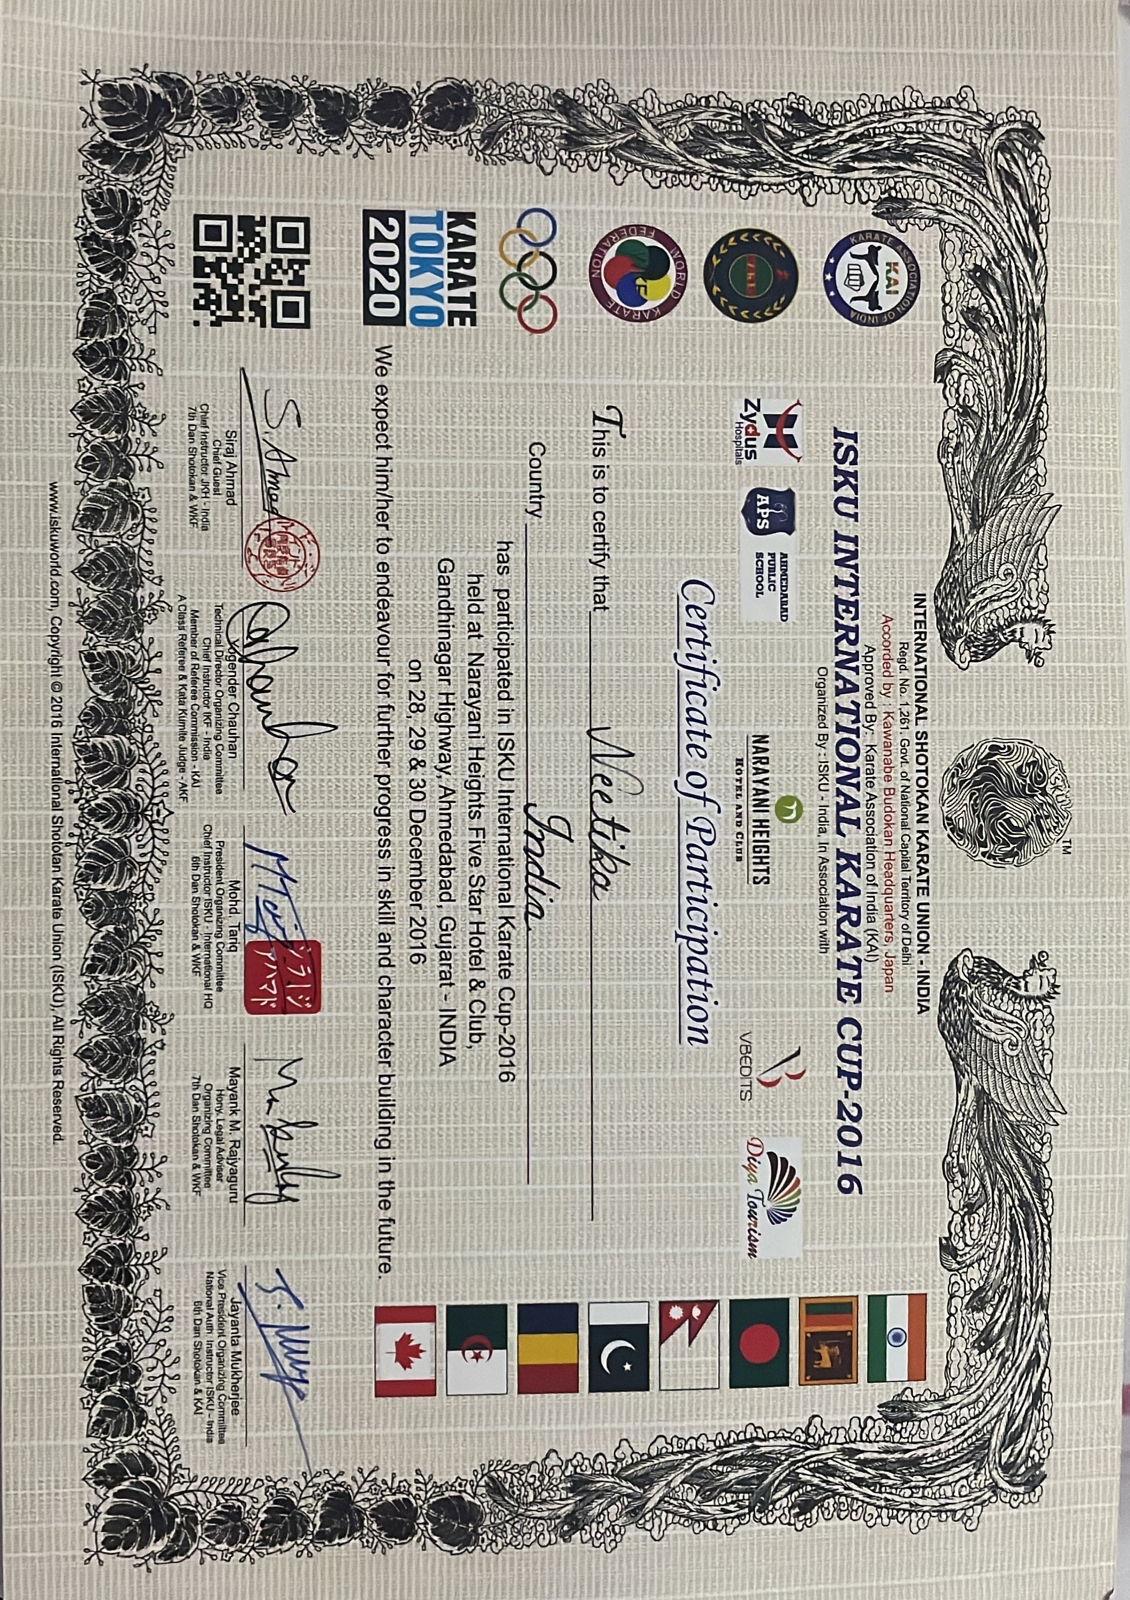 ISKU
TM
INTERNATIONAL SHOTOKAN KARATE UNION - INDIA
Regd. No. 1,261. Govt. of National Capital Territory of Delhi
Accorded by : Kawanabe Budokan Headquarters, Japan
Approved By: Karate Association of India (KAI)
ISKU INTERNATIONAL KARATE CUP-2016
Organized By : ISKU - India, In Association with
KARATE ASSOCIATION OF INDIA
KAI
Zydus
Hospitals
APS
AHMEDABAD
PUBLIC
SCHOOL
NARAYANI HEIGHTS
HOTEL AND CLUB
VBEDITS
Diya Tourism
Certificate of Participation
WORLD KARATE FEDERATION
This is to certify that Neetika
Country India
has participated in ISKU International Karate Cup-2016
held at Narayani Heights Five Star Hotel & Club,
Gandhinagar Highway, Ahmedabad, Gujarat - INDIA
on 28, 29 & 30 December 2016
We expect him/her to endeavour for further progress in skill and character building in the future.
KARATE
TOKYO
2020
S. Ahmad
シラージ
アハマド
Siraj Ahmad
Chief Guest
Chief Instructor JKH - India
7th Dan Shotokan & WKF
Jogender Chauhan
Technical Director Organizing Committee
Chief Instructor IKF - India
Member of Referee Commission - KAI
A Class Referee & Kata Kumite Judge - AKF
Mohd. Tariq
President Organizing Committee
Chief Instructor ISKU - International HQ
6th Dan Shotokan & WKF
Mayank M. Rajyaguru
Hony. Legal Adviser
Organizing Committee
7th Dan Shotokan & WKF
Jayanta Mukherjee
Vice President Organizing Committee
National Auth. Instructor ISKU - India
6th Dan Shotokan & KAI
www.iskuworld.com, Copyright © 2016 International Shototan Karate Union (ISKU), All Rights Reserved.